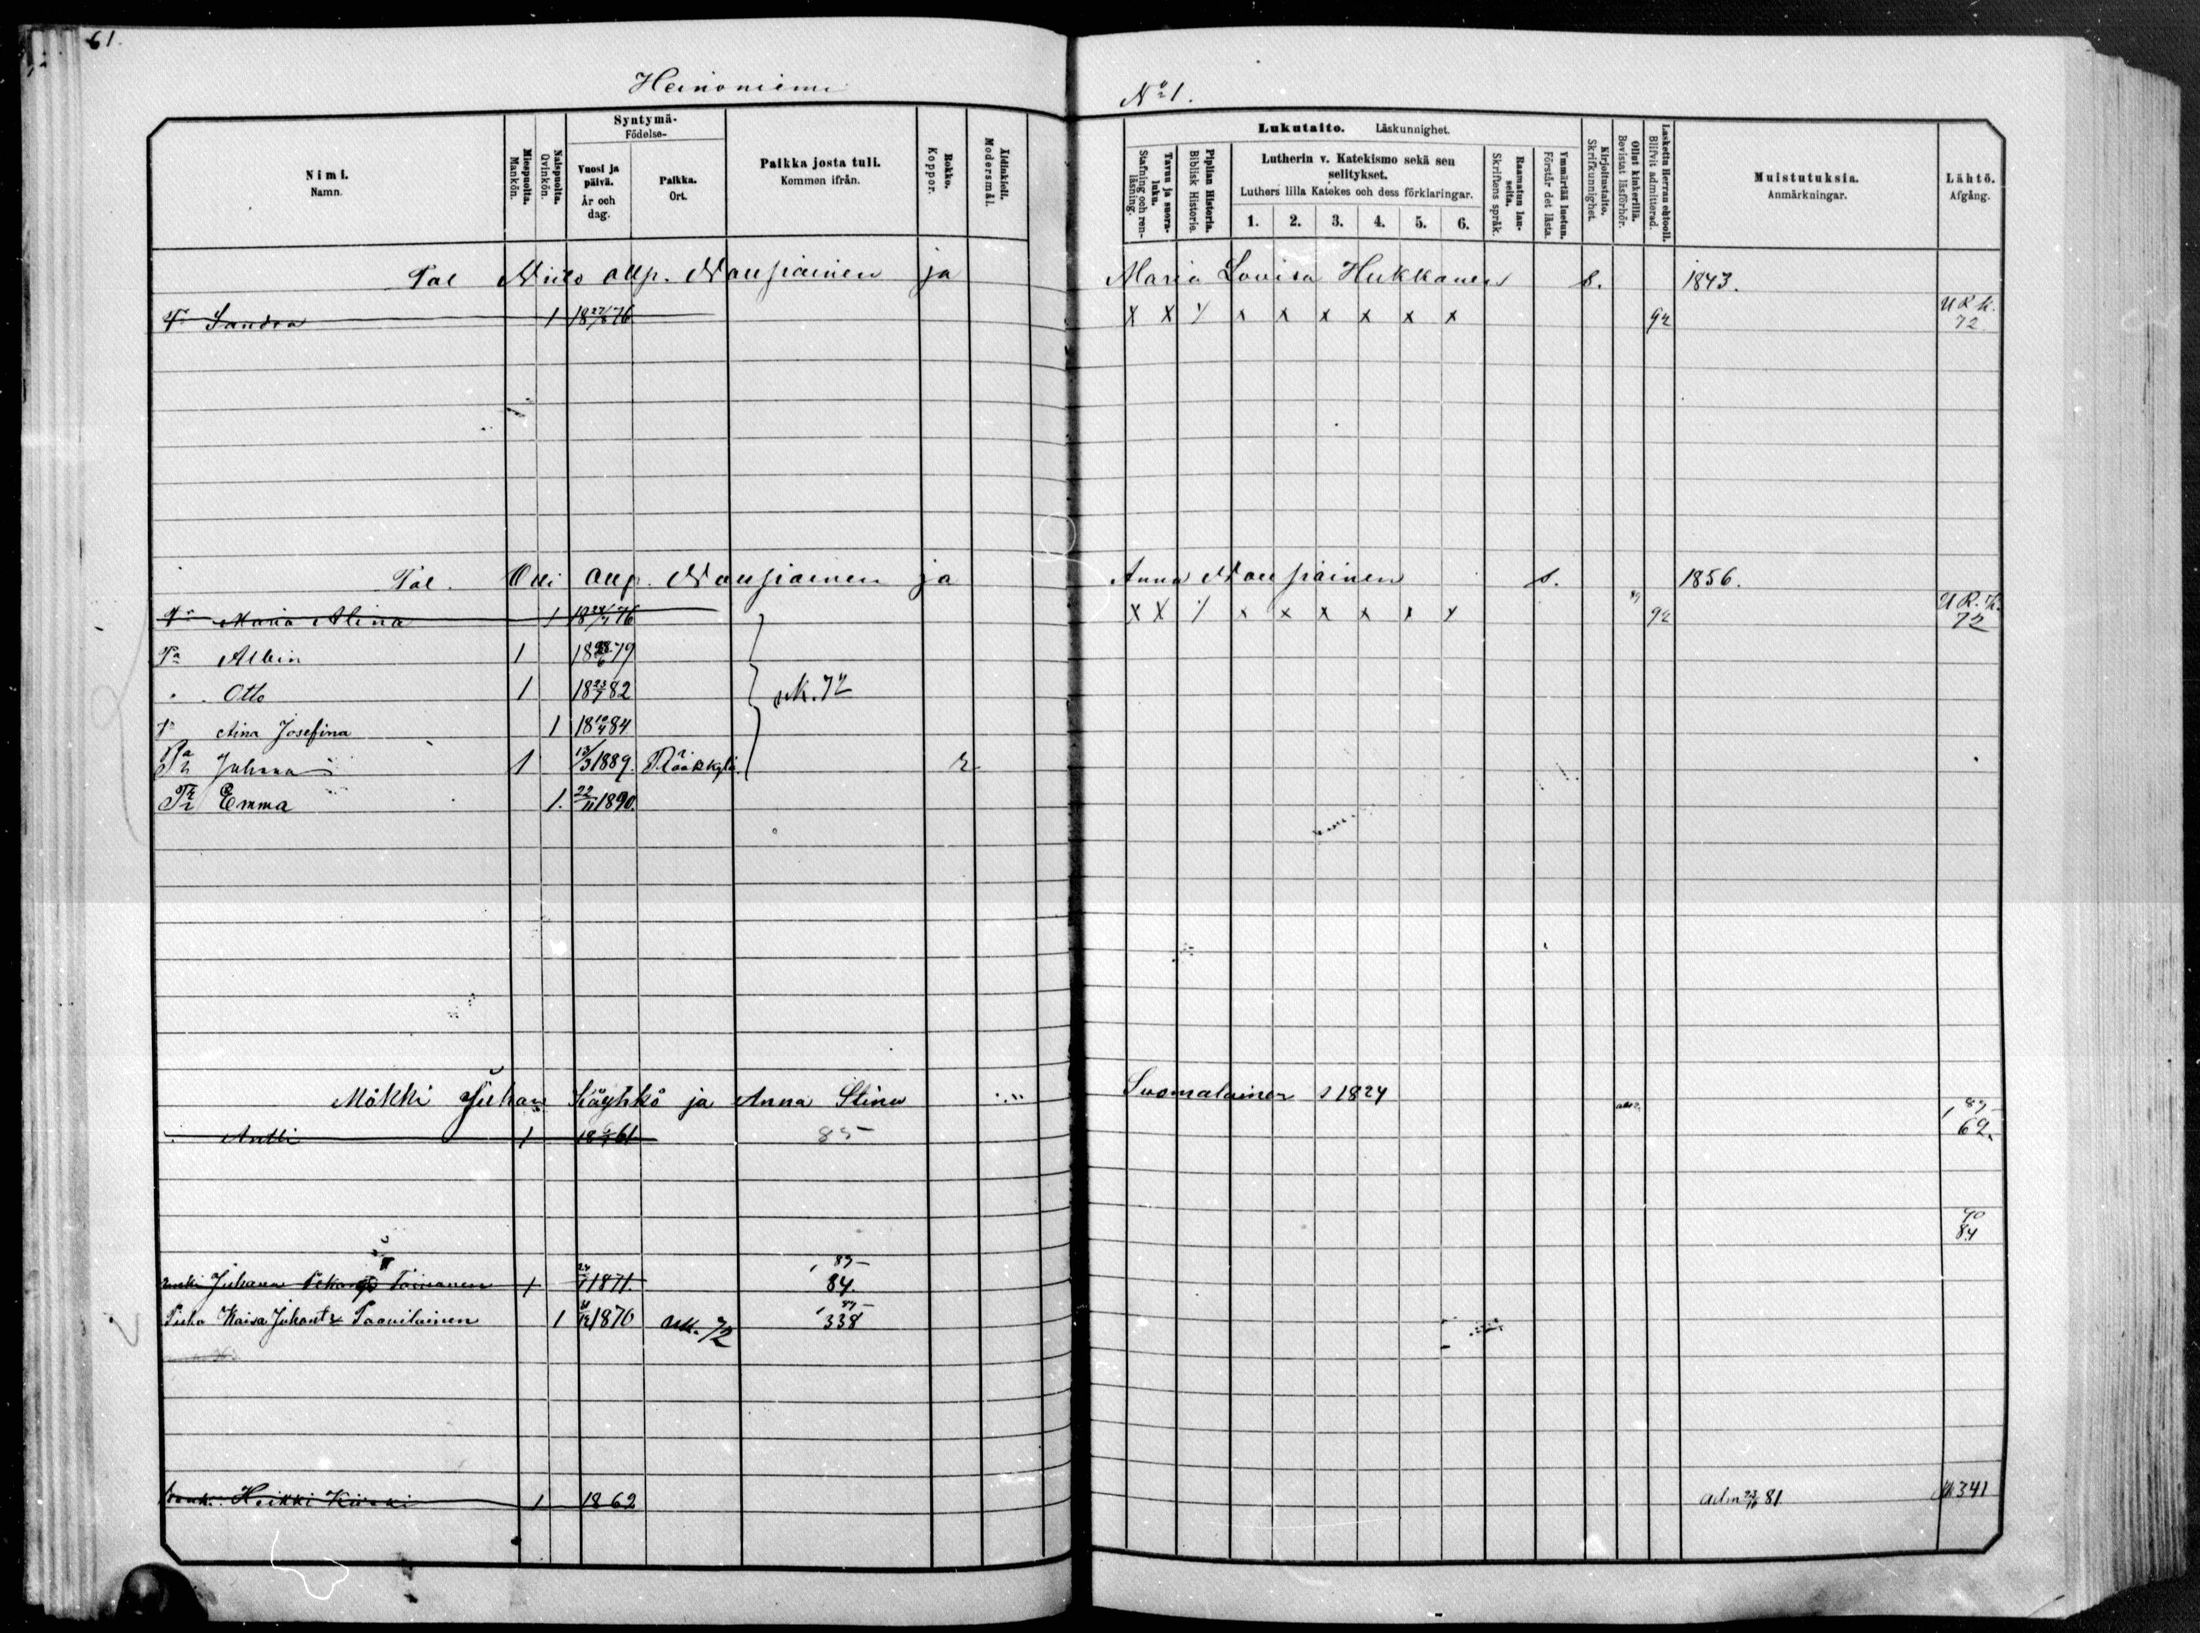 61.
Heinoniemi
No 1.
Nimi.
Namn.
Miespuolta.
Mankön.
Naispuolta.
Qvinkön.
Syntymä-
Födelse-
Vuosi ja päivä.
År och dag.
Paikka.
Ort.
Paikka josta tuli.
Kommen ifrån.
Rokko.
Koppor.
Äidinkieli.
Modersmål.
Lukutaito. Läskunnighet.
Tavuu ja suora-luku.
Stafning och ren-läsning.
Piplian Historia.
Biblisk Historie.
Lutherin v. Katekismo sekä sen selitykset.
Luthers lilla Katekes och dess förklaringar.
1. 2. 3. 4. 5. 6.
Raamatun lauseita.
Skriftens språk.
Ymmärtää luetun.
Förstår det lästa.
Kirjoitustaito.
Skrifkunnighet.
Ollut kinkerillä.
Bevistat läsförhör.
Laskettu Herran ehtooll.
Blifvit admitterad.
Muistutuksia.
Anmärkningar.
Lähtö.
Afgång.
Tal Niilo Ollp. Naupiainen ja Maria Lovisa Hukkanen s. 1843.
Sandra 1 18 76 X X X x x x x x x 92 U R K. 72
Tal. Olli Ollp. Naupiainen ja Anna Naupiainen s. 1856.
Maria Alina 1 18 76 X X x x x x x x 92 U R. K. 72
Albin 1 18 79
Otto 1 18 23/7 82 rk. 72
Aina Josefina 1 18 84
Juhana 1 13/3 1889. Rääkkylä r
Emma 1. 22/11 1890.
Mökki Juhan Käyhkö ja Anna Stina Suomalainen s 1824
Antti 1 18 61 85 85 62.
40
84
85
Juhana Toivanen 1 1871. 84.
Kaisa Juhant Paavilainen 1 1870 rk. 72 338
Heikki 1 1862 adm 81 341